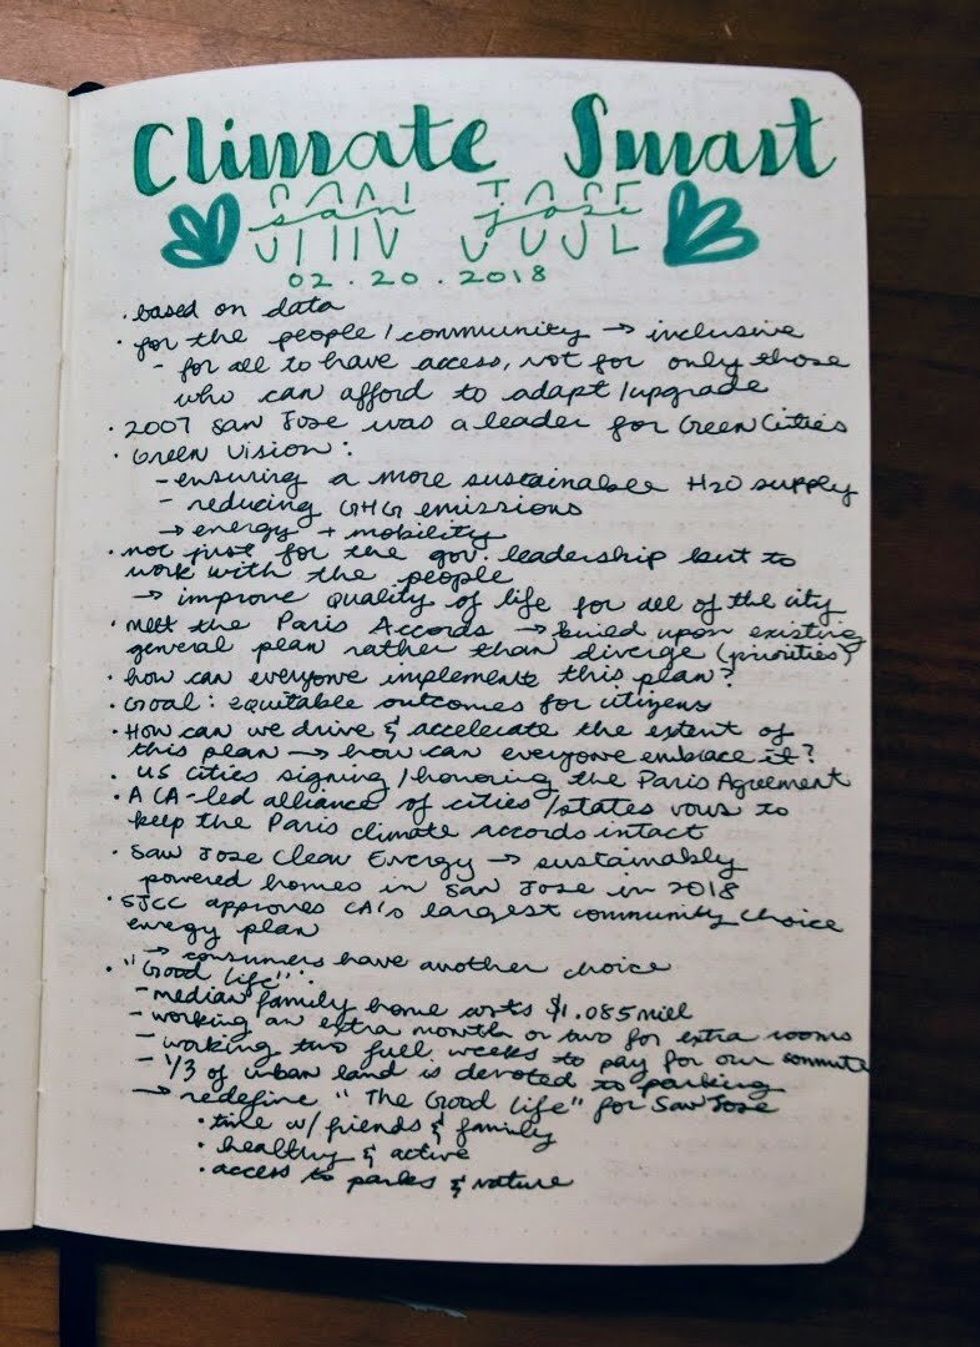 Climate Smart
san jose
SAN JOSE
02.20.2018
· based on data
· for the people / community → inclusive
- for all to have access, not for only those
who can afford to adapt / upgrade
· 2007 San Jose was a leader for Green Cities
· Green Vision:
- ensuring a more sustainable H2O supply
- reducing GHG emissions
→ energy + mobility
· not just for the gov. leadership but to
work with the people
→ improve quality of life for all of the city
· meet the Paris Accords → build upon existing
general plan rather than diverge (priorities)
· how can everyone implement this plan?
· Goal: equitable outcomes for citizens
· How can we drive & accelerate the extent of
this plan → how can everyone embrace it?
· US cities signing / honoring the Paris Agreement
· A CA-led alliance of cities / states vows to
keep the Paris climate accords intact
· San Jose Clean Energy → sustainably
powered homes in San Jose in 2018
· SJCC approves CA's largest community choice
energy plan
→ consumers have another choice
· "Good Life":
- median family home costs $1.085 mill
- working an extra month or two for extra rooms
- working two full weeks to pay for our commute
- 1/3 of urban land is devoted to parking
→ redefine "The Good Life" for San Jose
· time w/ friends & family
· healthy & active
· access to parks & nature